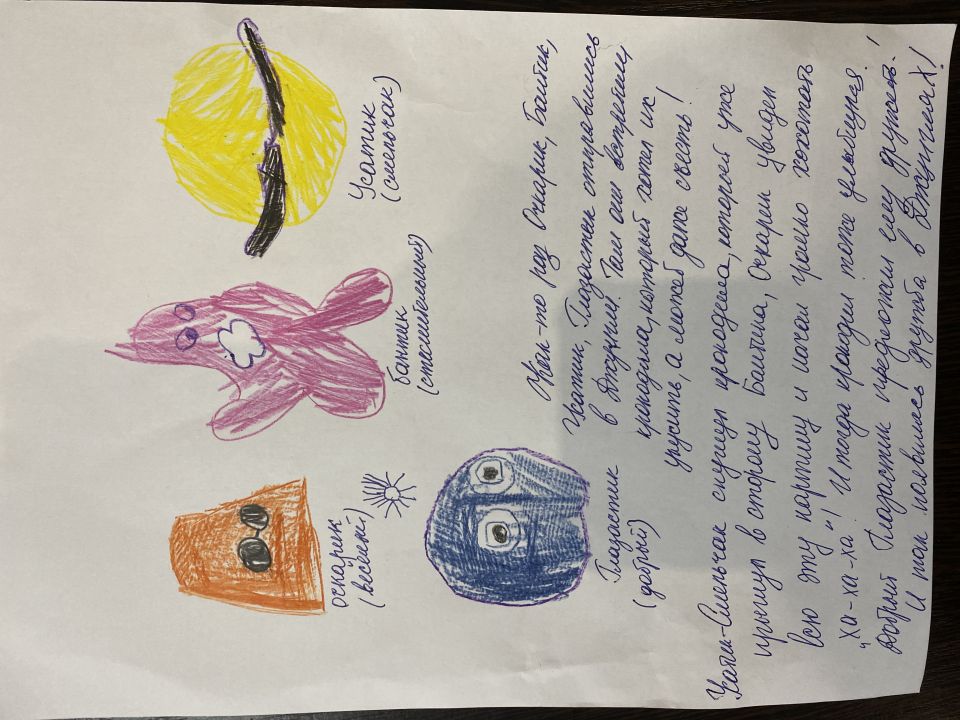 оскарик
(весёлый)
бантик
(стеснительный)
Усатик
(смельчак)
Глазастик
(добрый)
Как-то раз Очкарик, Бантик,
Усатик, Глазастик отправились
в Джунгли. Там они встретили
крокодила, который хотел их
укусить, а может даже съесть!
Усатик-Смельчак спугнул крокодила, который уже
прыгнул в сторону Бантика, Оскарик увидел
всю эту картину и начал громко хохотать
"ха-ха-ха"! И тогда крокодил тоже улыбнулся.
Добрый Глазастик предложил ему дружить!
И так появилась дружба в Джунглях!